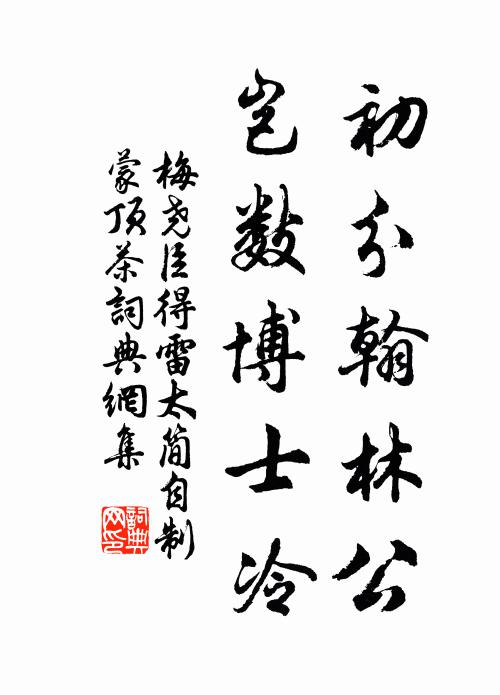 初分翰林公
岂数博士冷
梅尧臣得雷太简自制
蒙顶茶詞典網集
詞典网印